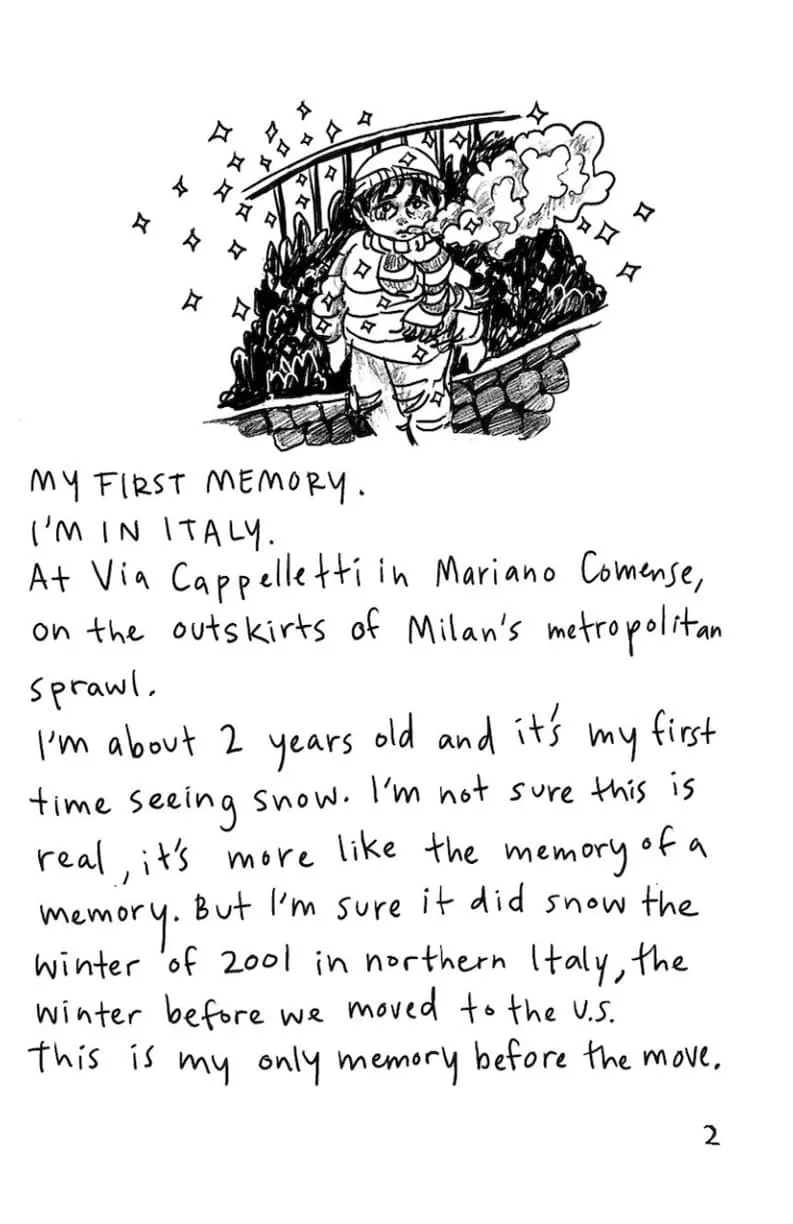 MY FIRST MEMORY.
I'M IN ITALY.
At Via Cappelletti in Mariano Comense,
on the outskirts of Milan's metropolitan
sprawl.
I'm about 2 years old and it's my first
time seeing snow. I'm not sure this is
real, it's more like the memory of a
memory. But I'm sure it did snow the
winter of 2001 in northern Italy, the
winter before we moved to the U.S.
This is my only memory before the move.
2